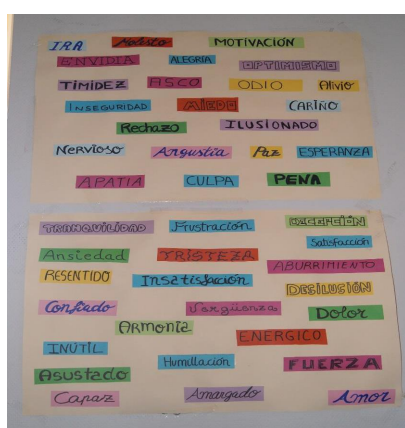 IRA Molesto MOTIVACIÓN
ENVIDIA ALEGRÍA OPTIMISMO
TIMIDEZ ASCO ODIO Alivio
INSEGURIDAD MIEDO CARIÑO
Rechazo ILUSIONADO
NERVIOSO Angustia Paz ESPERANZA
APATIA CULPA PENA
TRANQUILIDAD Frustración DECEPCIÓN
Satisfacción
Ansiedad TRISTEZA
ABURRIMIENTO
RESENTIDO Insatisfacción DESILUSIÓN
Confiado Vergüenza Dolor
ARMONIA
ENERGICO
INÚTIL Humillación FUERZA
Asustado
Capaz Amargado Amor